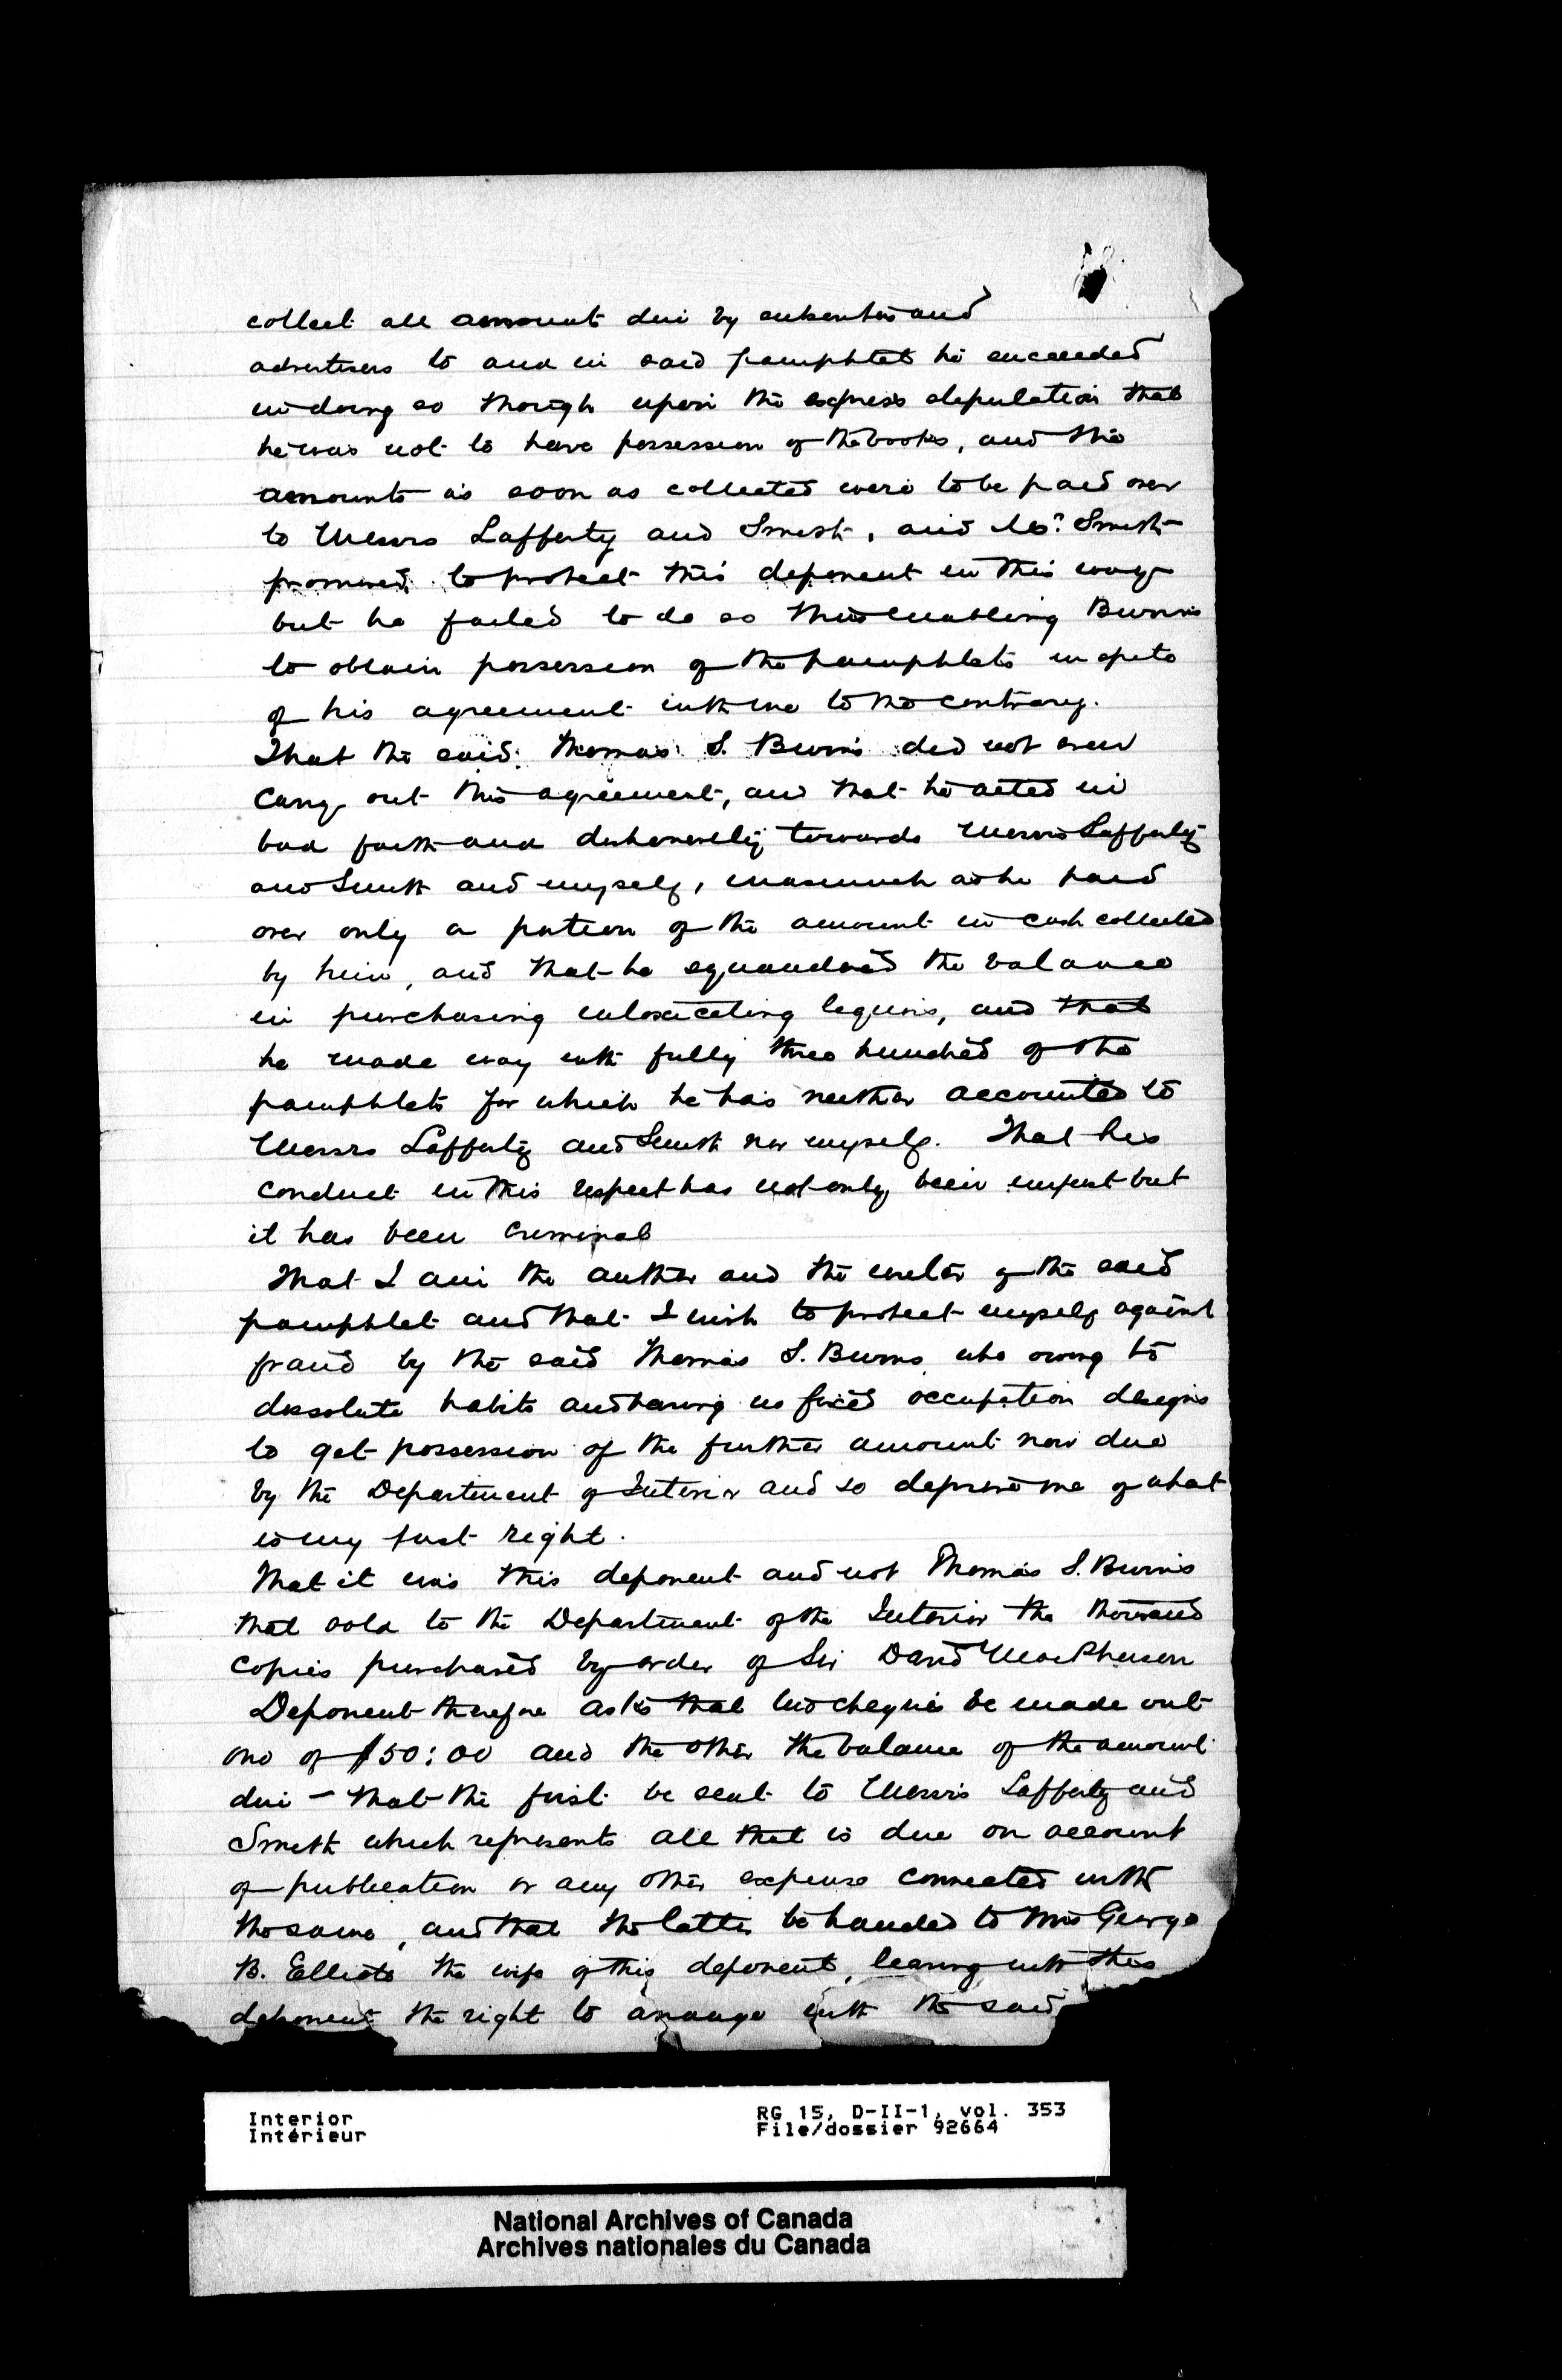 collect all amount due by subscribers and
advertisers to and in said pamphlet he succeeded
in doing so though upon the express stipulation that
he was not to have possession of the books, and the
amounts as soon as collected were to be paid over
to Messrs Lafferty and Smith, and Mr. Smith
promised to protect this deponent in this way
but he failed to do so thus enabling Burns
to obtain possession of the pamphlets in spite
of his agreement with me to the contrary.
That the said Thomas S. Burns did not even
carry out this agreement, and that he acted in
bad faith and dishonestly towards Messrs Lafferty
and Smith and myself, inasmuch as he paid
over only a portion of the amount in cash collected
by him, and that he squandered the balance
in purchasing intoxicating liquors, and that
he made way with fully three hundred of the
pamphlets for which he has neither accounted to
Messrs Lafferty and Smith nor myself. That his
conduct in this respect has not only been unjust but
it has been criminal
That I am the author and the writer of the said
pamphlet and that I wish to protect myself against
fraud by the said Thomas S. Burns who owing to
dissolute habits and having no fixed occupation designs
to get possession of the further amount now due
by the Department of Interior and so deprive me of what
is my just right.
That it was this deponent and not Thomas S. Burns
that sold to the Department of the Interior the thousand
copies purchased by order of Sir David MacPherson
Deponent therefore asks that two cheques be made out
one of $50:00 and the other the balance of the amount
due – that the first be sent to Messrs Lafferty and
Smith which represents all that is due on account
of publication or any other expense connected with
the same, and that the latter be handed to Mrs George
B. Elliott the wife of this deponent, leaving with this
deponent the right to arrange with the said
Interior
Intérieur
RG 15, D-II-1, vol. 353
File/dossier 92664
National Archives of Canada
Archives nationales du Canada